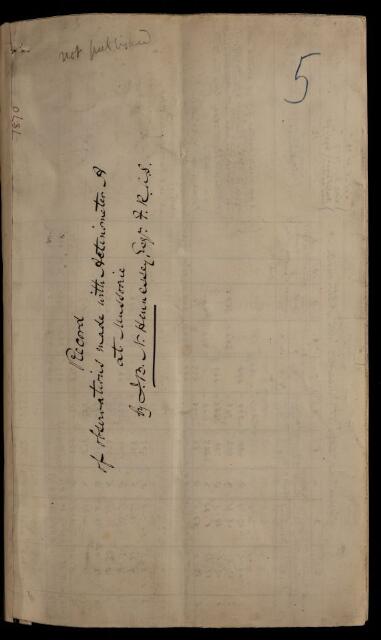 not published
5
1870
Record
of observations made with Actinometer A
at Mussorie
by J. B. N. Hennessey, Esqr. F. R. A. S.